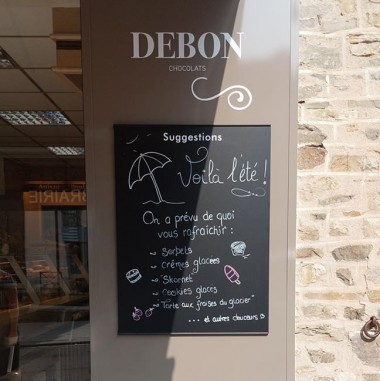 DEBON
CHOCOLATS
Suggestions
Voilà l'été !
On a prévu de quoi
vous rafraîchir :
Sorbets
Crèmes glacées
"Skornet"
Cookies glacés
"Tarte aux fraises du glacier"
... et autres douceurs
BRAIRIE